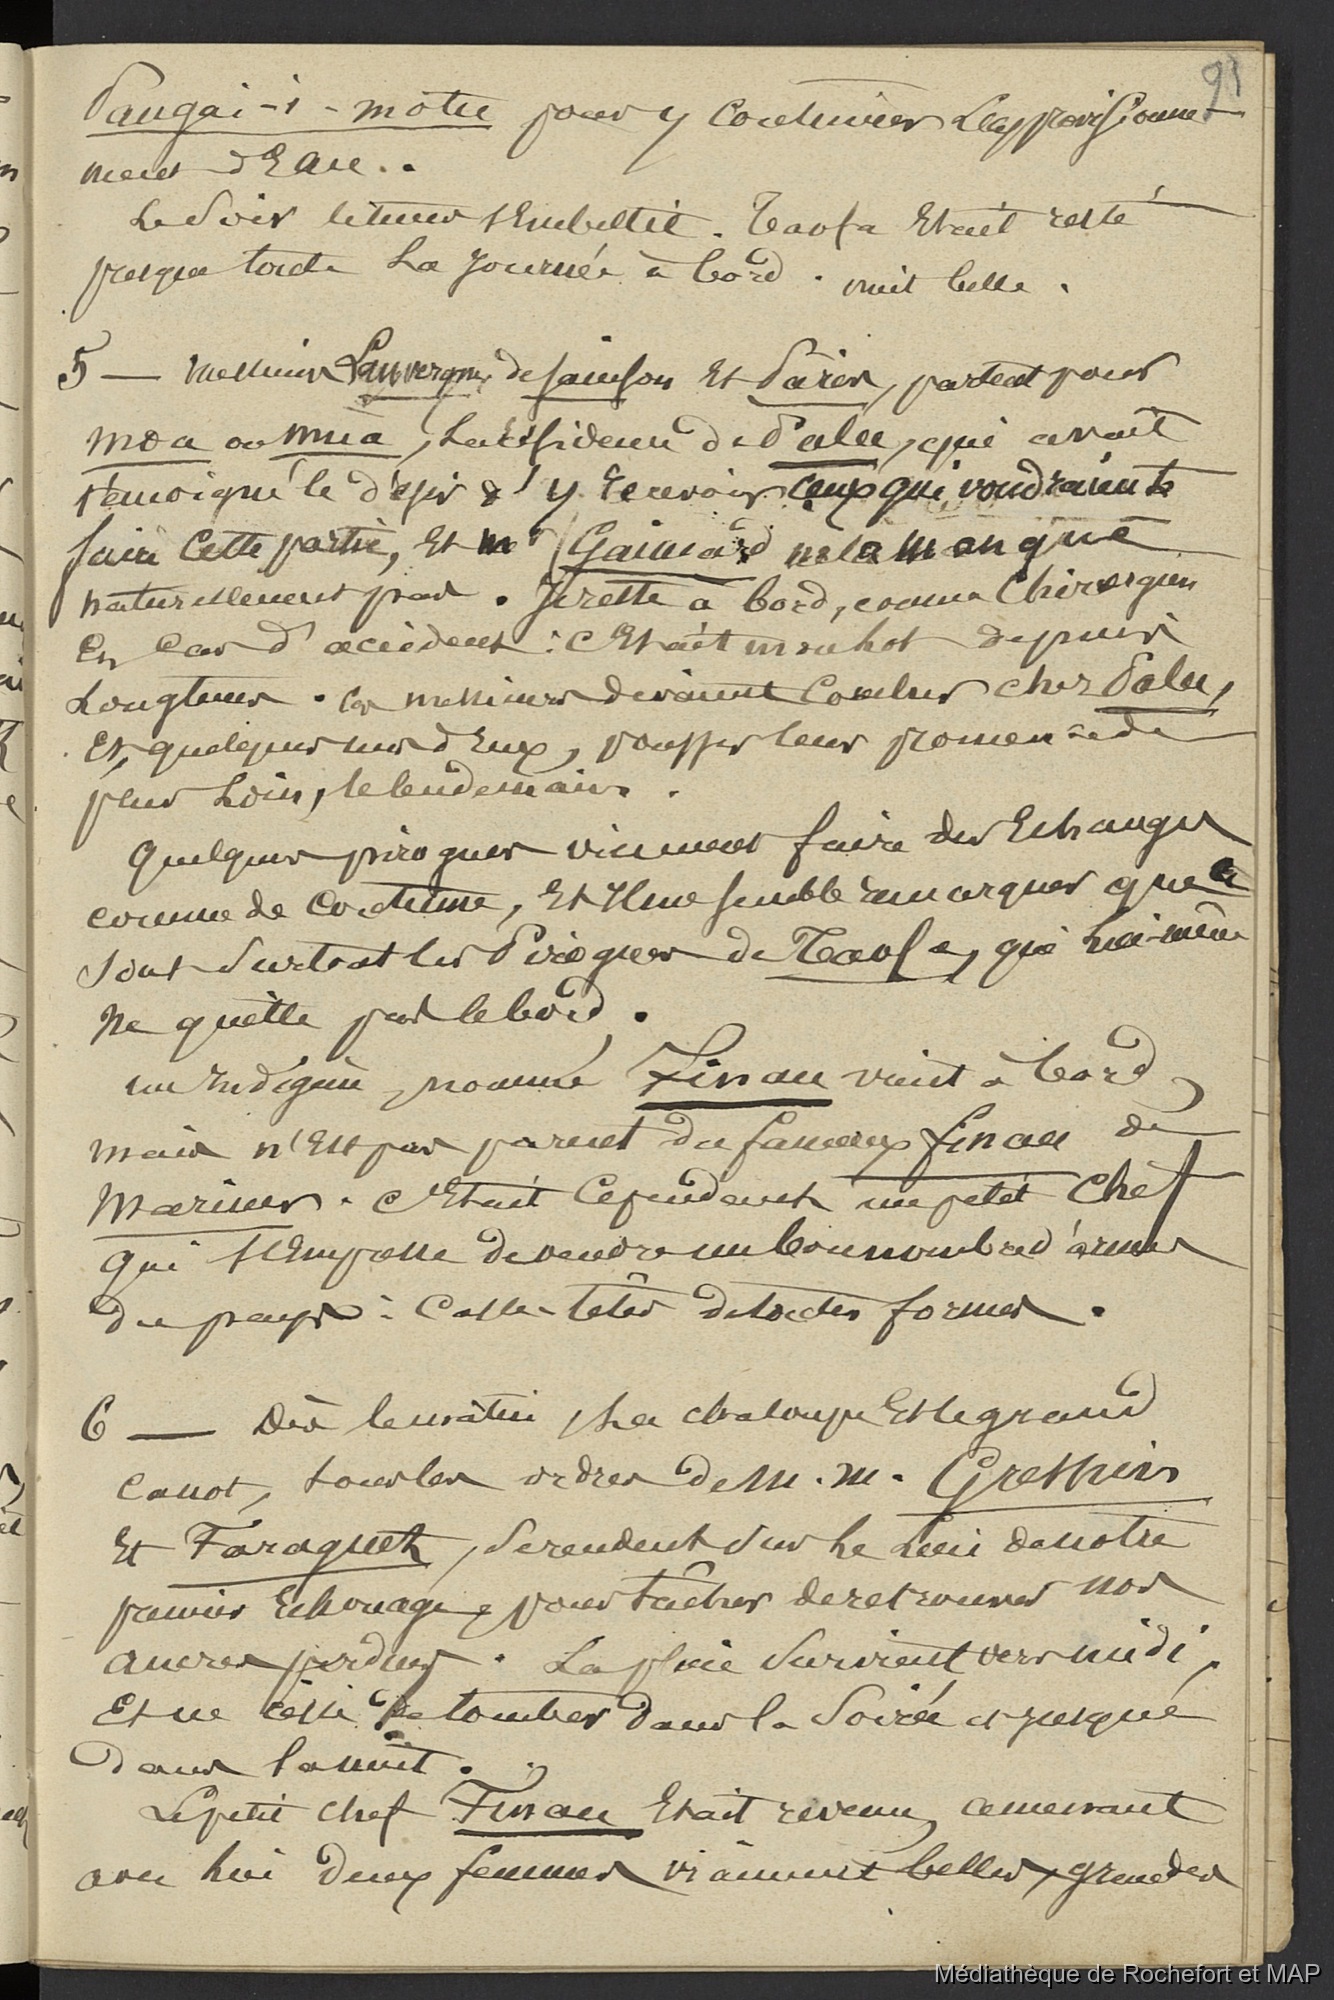 91
Pangaï-i-motu pour y continuer l'approvisionne-
ment d'Eau..
Le Soir le tems s'Embellit. Taofa Etait resté
presque toute La journée à bord. nuit belle.
5 — messieurs Lauvergne, de Sainson Et Pâris, partent pour
moa ou mua, La résidence de Palu, qui avait
témoigné le désir d'y recevoir ceux qui voudraient
faire Cette partie, Et mr Gaimard ne la manqua
naturellement pas. Je reste à bord, comme Chirurgien
En Cas d'accident : c'Etait mon lot depuis
Longtems. Ces messieurs devaient Coucher chez Palu,
Et, quelques uns d'Eux, pousser leur promenade
plus Loin, le lendemain.
Quelques pirogues viennent faire des Echanges
comme de Coutume, Et Il me semble remarquer que ce
sont Surtout les Pirogues de Taofa, qui Lui-même
ne quitte pas le bord.
un Indigène, nommé Finau vient à bord,
mais n'Est pas parent du fameux finau de
Mariner. C'Etait Cependant un petit Chef
qui s'Empresse de vendre un bon nombre d'armes
du pays : Casse-têtes de toutes formes.
6 — Dès le matin, La chaloupe Et le grand
Canot, sous les ordres de M. M. Gressien
Et Faraguet, se rendent sur Le Lieu de notre
premier Echouage, pour tâcher de retrouver nos
ancres perdues. La pluie Survient vers midi,
Et ne cesse de tomber dans la Soirée et jusque
dans la nuit.
Le petit chef Finau Etait revenu, amenant
avec lui deux femmes vraiment belles, grandes
Médiathèque de Rochefort et MAP